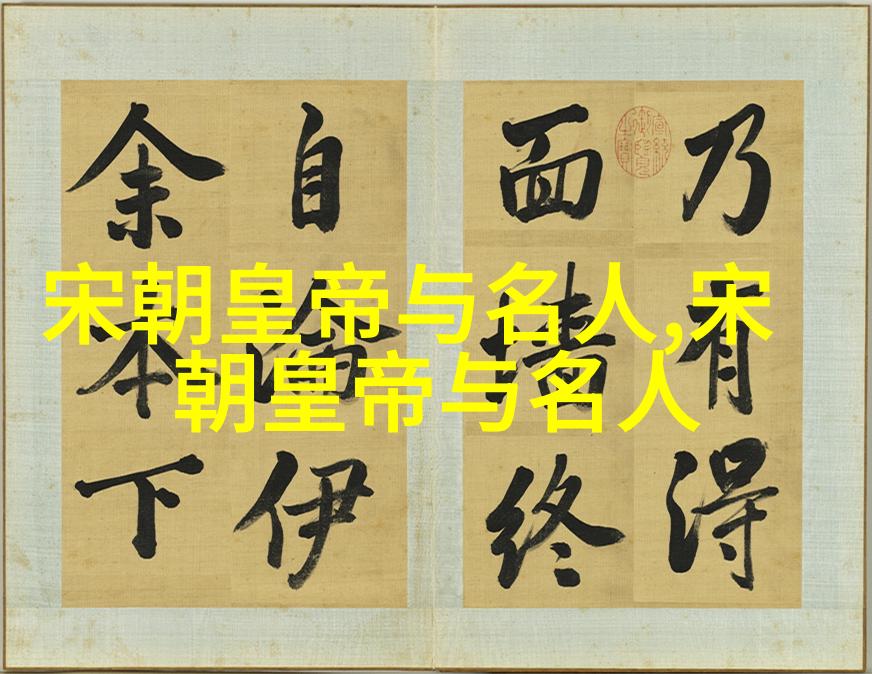 宋朝皇帝与名人,宋
朝皇帝与名人
乃有得
面墻終
自伊
余本下